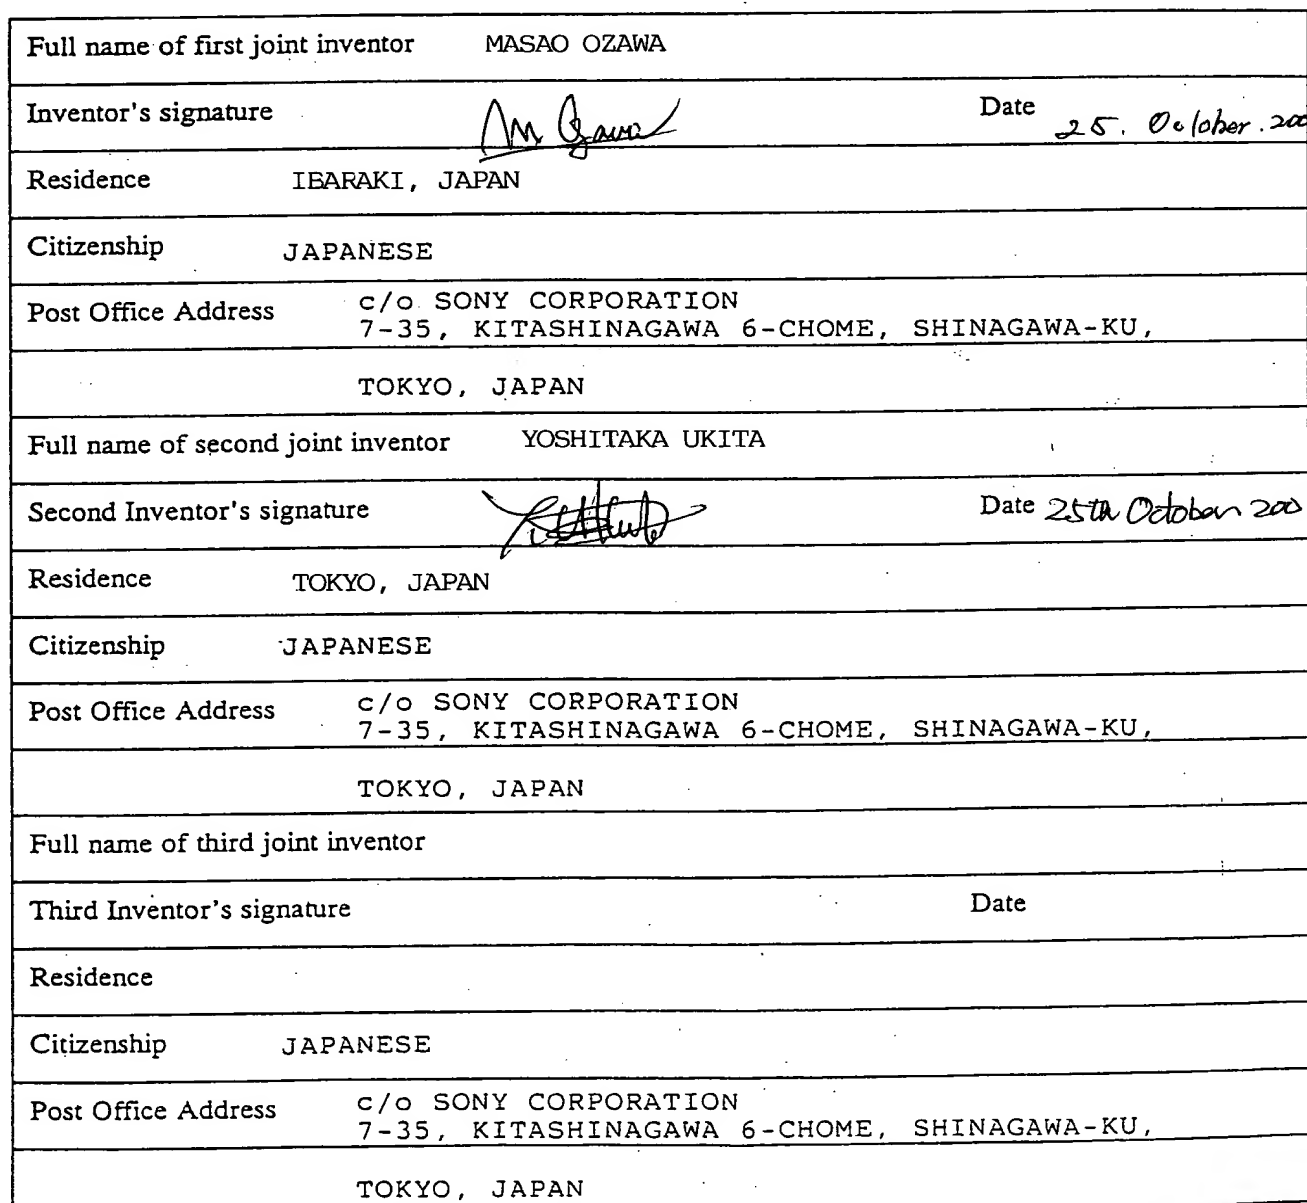 Full name of first joint inventor MASAO OZAWA
Inventor's signature M Ozawa Date 25. October. 200
Residence IBARAKI, JAPAN
Citizenship JAPANESE
Post Office Address c/o SONY CORPORATION
7-35, KITASHINAGAWA 6-CHOME, SHINAGAWA-KU,
TOKYO, JAPAN
Full name of second joint inventor YOSHITAKA UKITA
Second Inventor's signature Date 25th October 200
Residence TOKYO, JAPAN
Citizenship JAPANESE
Post Office Address c/o SONY CORPORATION
7-35, KITASHINAGAWA 6-CHOME, SHINAGAWA-KU,
TOKYO, JAPAN
Full name of third joint inventor
Third Inventor's signature Date
Residence
Citizenship JAPANESE
Post Office Address c/o SONY CORPORATION
7-35, KITASHINAGAWA 6-CHOME, SHINAGAWA-KU,
TOKYO, JAPAN